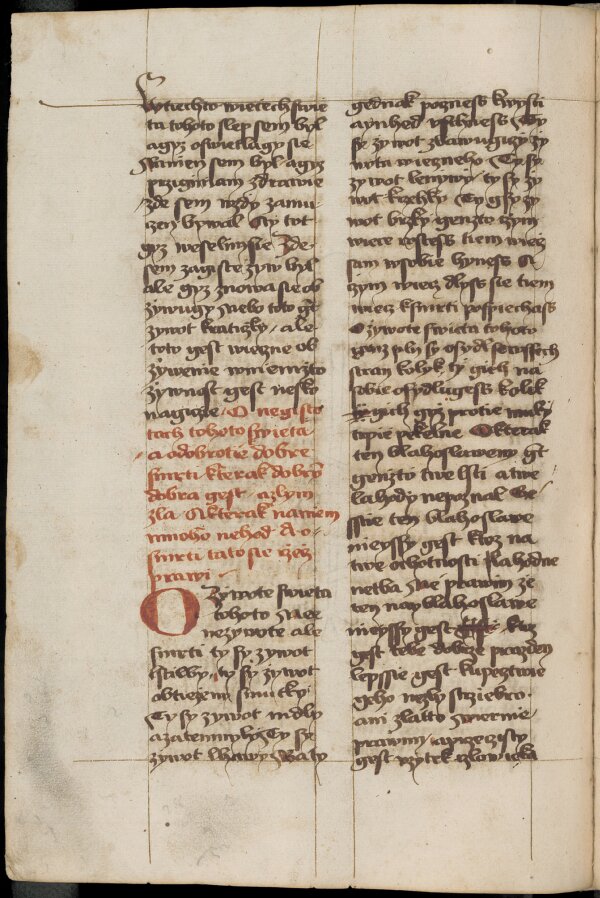 W tiechto wietech swie
ta tohoto slep sem byl
agyz oswietlagy sie
Kamen sem byl agyz
przigimam zdrawie
zde sem wzdy zamu
czen bywal Ay tot
gyz weselimsie Zde
sem zagiste zyw byl
ale gyz znowa sie ob
zywugy Nebo toto gt
zywot kraticzky ale
toto gest wieczne ob
zywenie w niemzto
zywnost gest nesko
nagicie O negisto
tach tohoto swieta
a o dobrotie dobre
smrti kterak dobrym
dobra gest a zlym
zla A kterak nawiem
mnoho nehod A o
smrti tato sie rzecz
prawi
O Zywote swieta
tohoto Ne
nezywote ale
smrti ty sy zywot
lstiwy ty sy zywot
obtiezeny smutky
Ty sy zywot mdly
a zatemnyly Ty sy
zywot lhawy Na ty
gednak pozness kwysti
a ynhed vschness Ty
sy zywot zbawugiczy zy
wota wieczneho Ty sy
zywot leniwy ty sy zy
wot krzehky Ty gsy zy
wot brzky genzto czym
wiece rostess tiem wiecz
sam w sobie hyness A
czym wiecz dlyss sie tiem
wiecz k smrti pospiechass
O zywote swieta tohoto
genz plny sy osydl se wssech
stran kolyk ty gich na
sobie osydlugess kolik
gich gyz protie muky
trpie pekelne O kterak
ten blahoslaweny gt
genzto twe lsti a twe
lahody nepoznal We
sstie ten blahoslawe
nieyssy gest ktoz na
twe ochotnosti lahodne
netba Ne prawim ze
ten nayblahoslawe
nieyssy gest ktoz
gest tebe dobrze prazden
lepssie gest kupecztwie
geho nezly strziebro
ani zlatto smernie
prawim a przeczisty
gest vzytek czlowieka